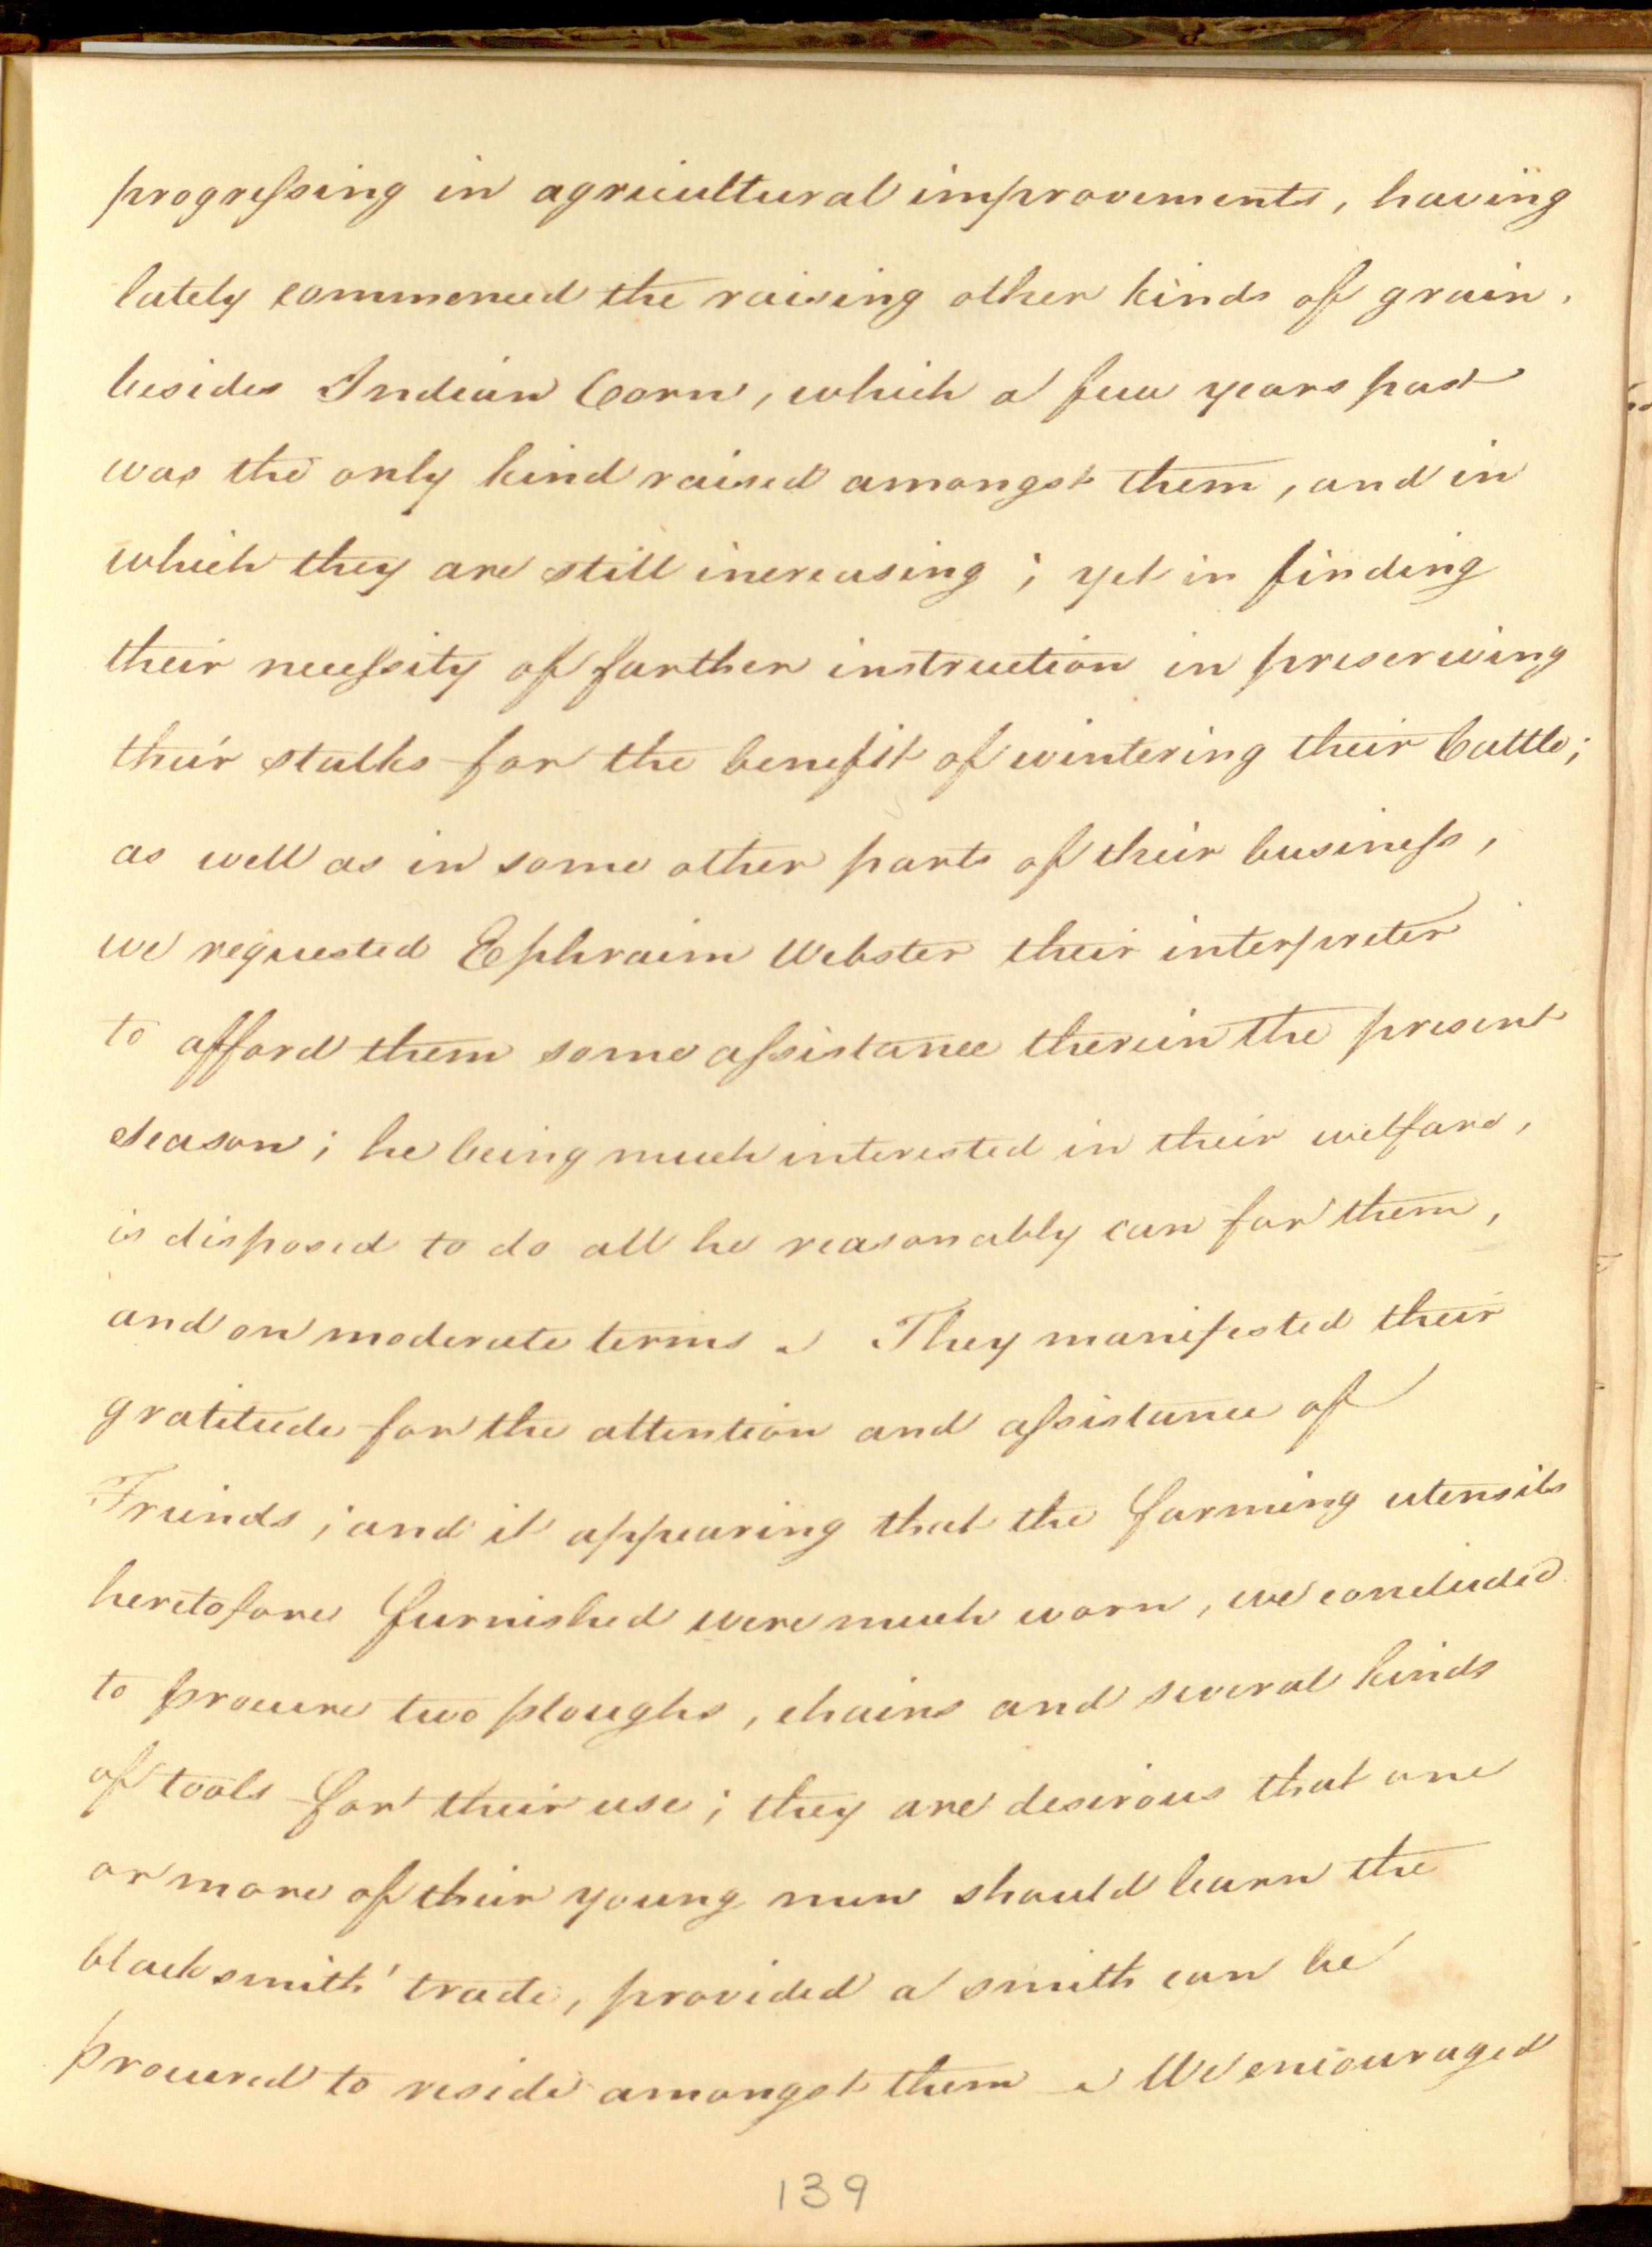 progressing in agricultural improvements, having
lately commenced the raising other kinds of grain,
besides Indian Corn, which a few years past
was the only kind raised amongst them, and in
which they are still increasing; yet in finding
their necessity of farther instruction in preserving
their stalks for the benefit of wintering their Cattle;
as well as in some other parts of their business,
we requested Ephraim Webster their interpreter
to afford them some assistance therein the present
season; he being much interested in their welfare,
is disposed to do all he reasonably can for them,
and on moderate terms. They manifested their
gratitude for the attention and assistance of
Friends; and it appearing that the farming utensils
heretofore furnished were much worn, we concluded
to procure two ploughs, chains and several kinds
of tools for their use; they are desirous that one
or more of their young men should learn the
blacksmith' trade, provided a smith can be
procured to reside amongst them. We encouraged
139